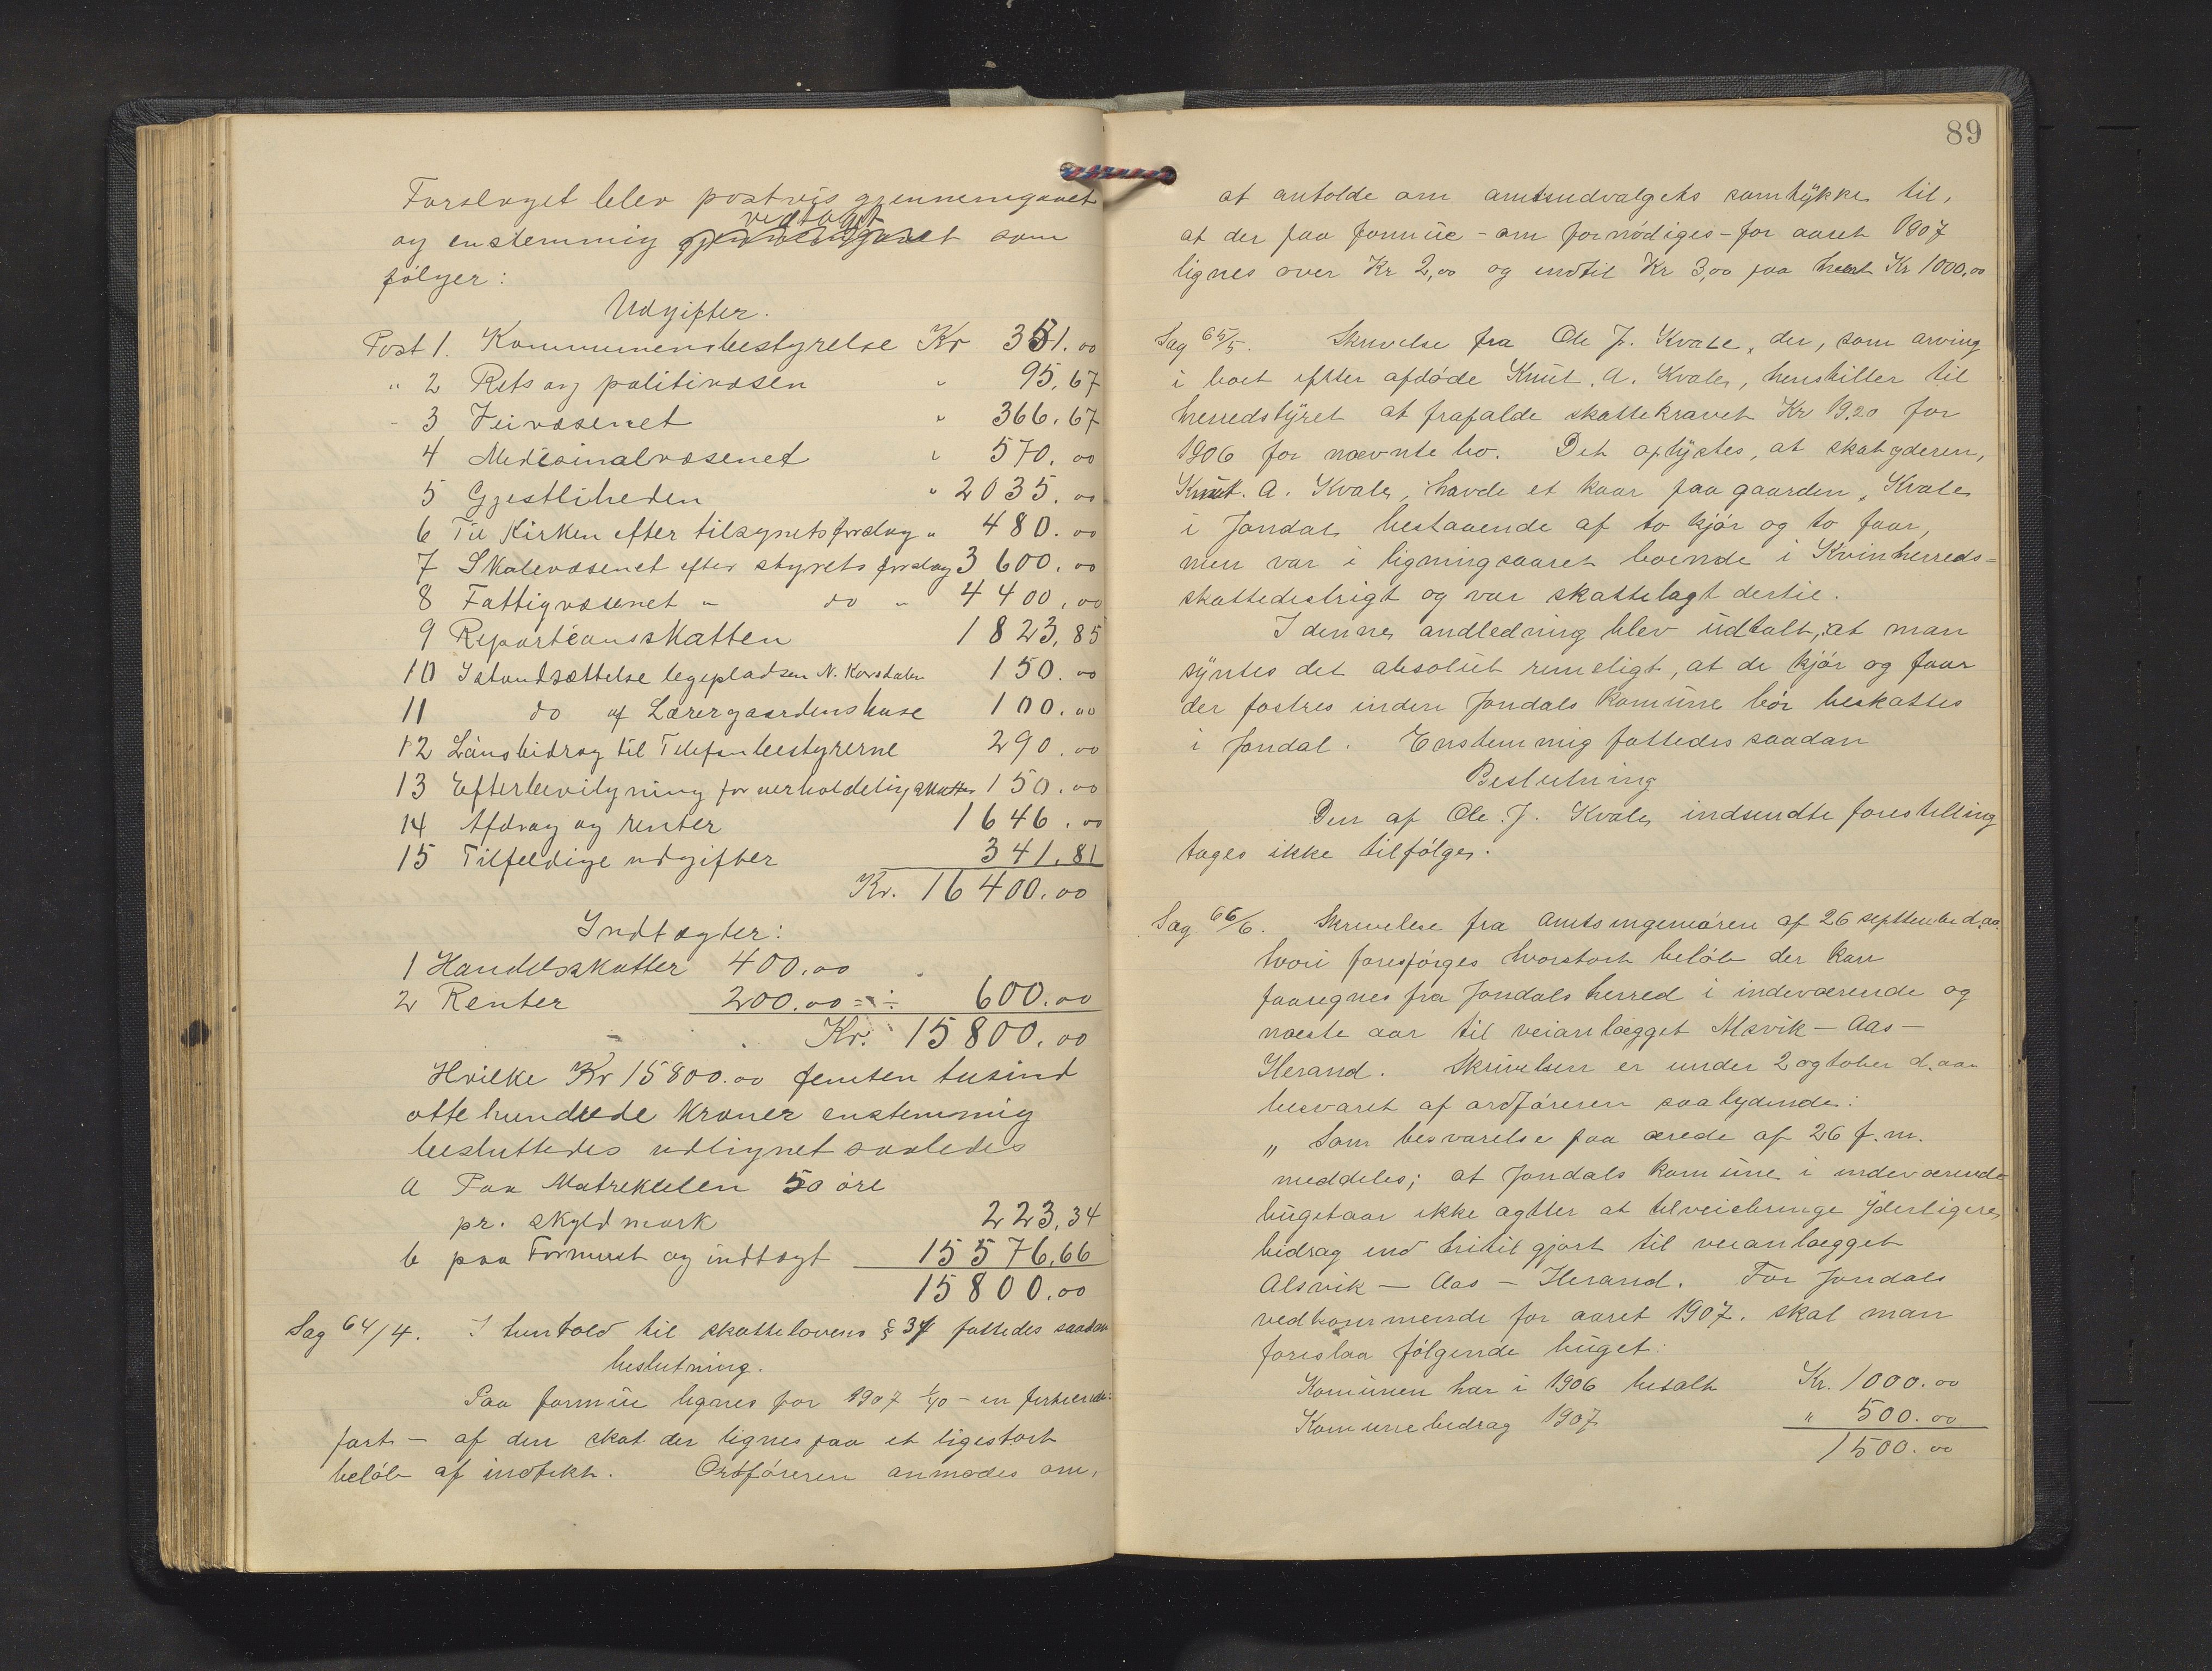 Forslaget blev postvis gjennemgaaet
vedtaget
og enstemmig gjennemgaaet som
følger:
Udgifter.
Post 1. Kommunensbestyrelse Kr 351.00
" 2 Rets og politivæsen " 95,67
- 3 Veivæsenet " 366.67
4 Medicinalvæsenet " 570.00
5 Gjestligheden " 2035.00
6 Til Kirken efter tilsynets forslag " 480.00
7 Skolevæsenet efter styrets forslag 3600.00
8 Fattigvæsenet " do " 4400,00
9 Repartitionsskatten 1823,85
10 Istandsættelse legepladsen N. Korsdalen 150.00
11 do af Lærergaardens huse 100.00
12 Lønsbidrag til Telefonbestyrerne 290.00
13 Efterbevilgning for uerholdelig skatter 150.00
14 Afdrag og renter 1646.00
15 Tilfeldige udgifter 341.81
Kr. 16400.00
Indtægter:
1 Handelsskatter 400.00
2 Renter 200.00 = ÷ 600.00
Kr. 15800.00
Hvilke Kr 15800.00 femten tusind
otte hundrede Kroner enstemmig
besluttedes udlignet saaledes
a Paa Matrekulen 50 øre
pr. skyldmark 223,34
b paa Formue og indtægt 15576,66
15800.00
Sag 64/4. I henhold til skattelovens § 37 fattedes saadan
beslutning.
Paa formue lignes for 1907 1/10 - en
part - af den skat der lignes paa et ligestort
beløb af indtekt. Ordføreren anmodes om,
89
at anholde om amtsudvalgets samtykke til,
at der paa formue - om fornødiges - for aaret 1907
lignes over Kr 2,00 og indtil Kr 3,00 paa hvert Kr 1000,00
Sag 65/5. Skrivelse fra Ole J. Kvale, der, som arving
i boet efter afdøde Knut. A. Kvale, henstiller til
herredstyret at frafalde skattekravet Kr 19.20 for
1906 for nævnte bo. Det oplystes, at skatyderen,
Knut. A. Kvale, havde et kaar paa gaarden, Kvale
i Jondal, bestaaende af to kjør og to faar,
men var i ligningsaaret boende i Kvinherreds-
skattedestrigt og var skattelagt dertil.
I dennes andledning blev udtalt, at man
syntes det absolut rimeligt, at de kjør og faar
der fostres inden Jondals komune bør beskattes
i Jondal. Enstemmig fattedes saadan
Beslutning
Den af Ole. J. Kvale indsendte forestilling
tages ikke tilfølge.
Sag 66/6. Skrivelse fra amtsingeniøren af 26 septtember d.aa.
hvori forespørges hvorstort beløb der kan
paaregnes fra Jondals herred i indeværende og
næste aar til veianlægget Alsvik - Aas -
Herand. Skrivelsen er under 2 ogtober d.aa
besvaret af ordføreren saalydende:
" Som besvarelse paa ærede af 26 f.m.
meddeles; at Jondals komune i indeværende
bugetaar ikke agtter at tilveiebringe yderligere
bidrag end hitil gjort til veianlægget
Alsvik - Aas - Herand. For Jondals
vedkommende for aaret 1907. skal man
foreslaa følgende buget:
Komunen har i 1906 betalt Kr. 1000.00
Komunebidrag 1907 " 500.00
1500.00